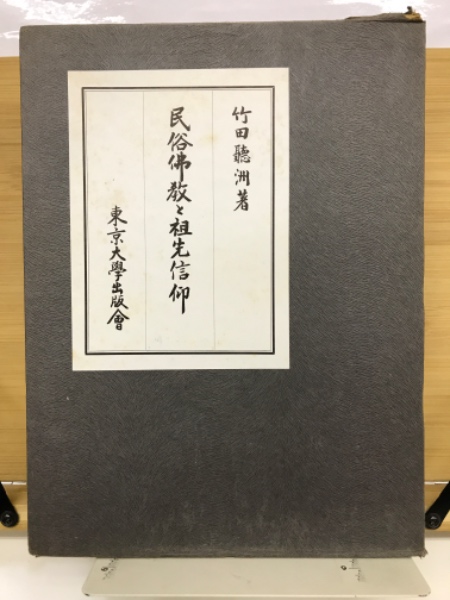 竹田聽洲著
民俗佛教と祖先信仰
東京大學出版會